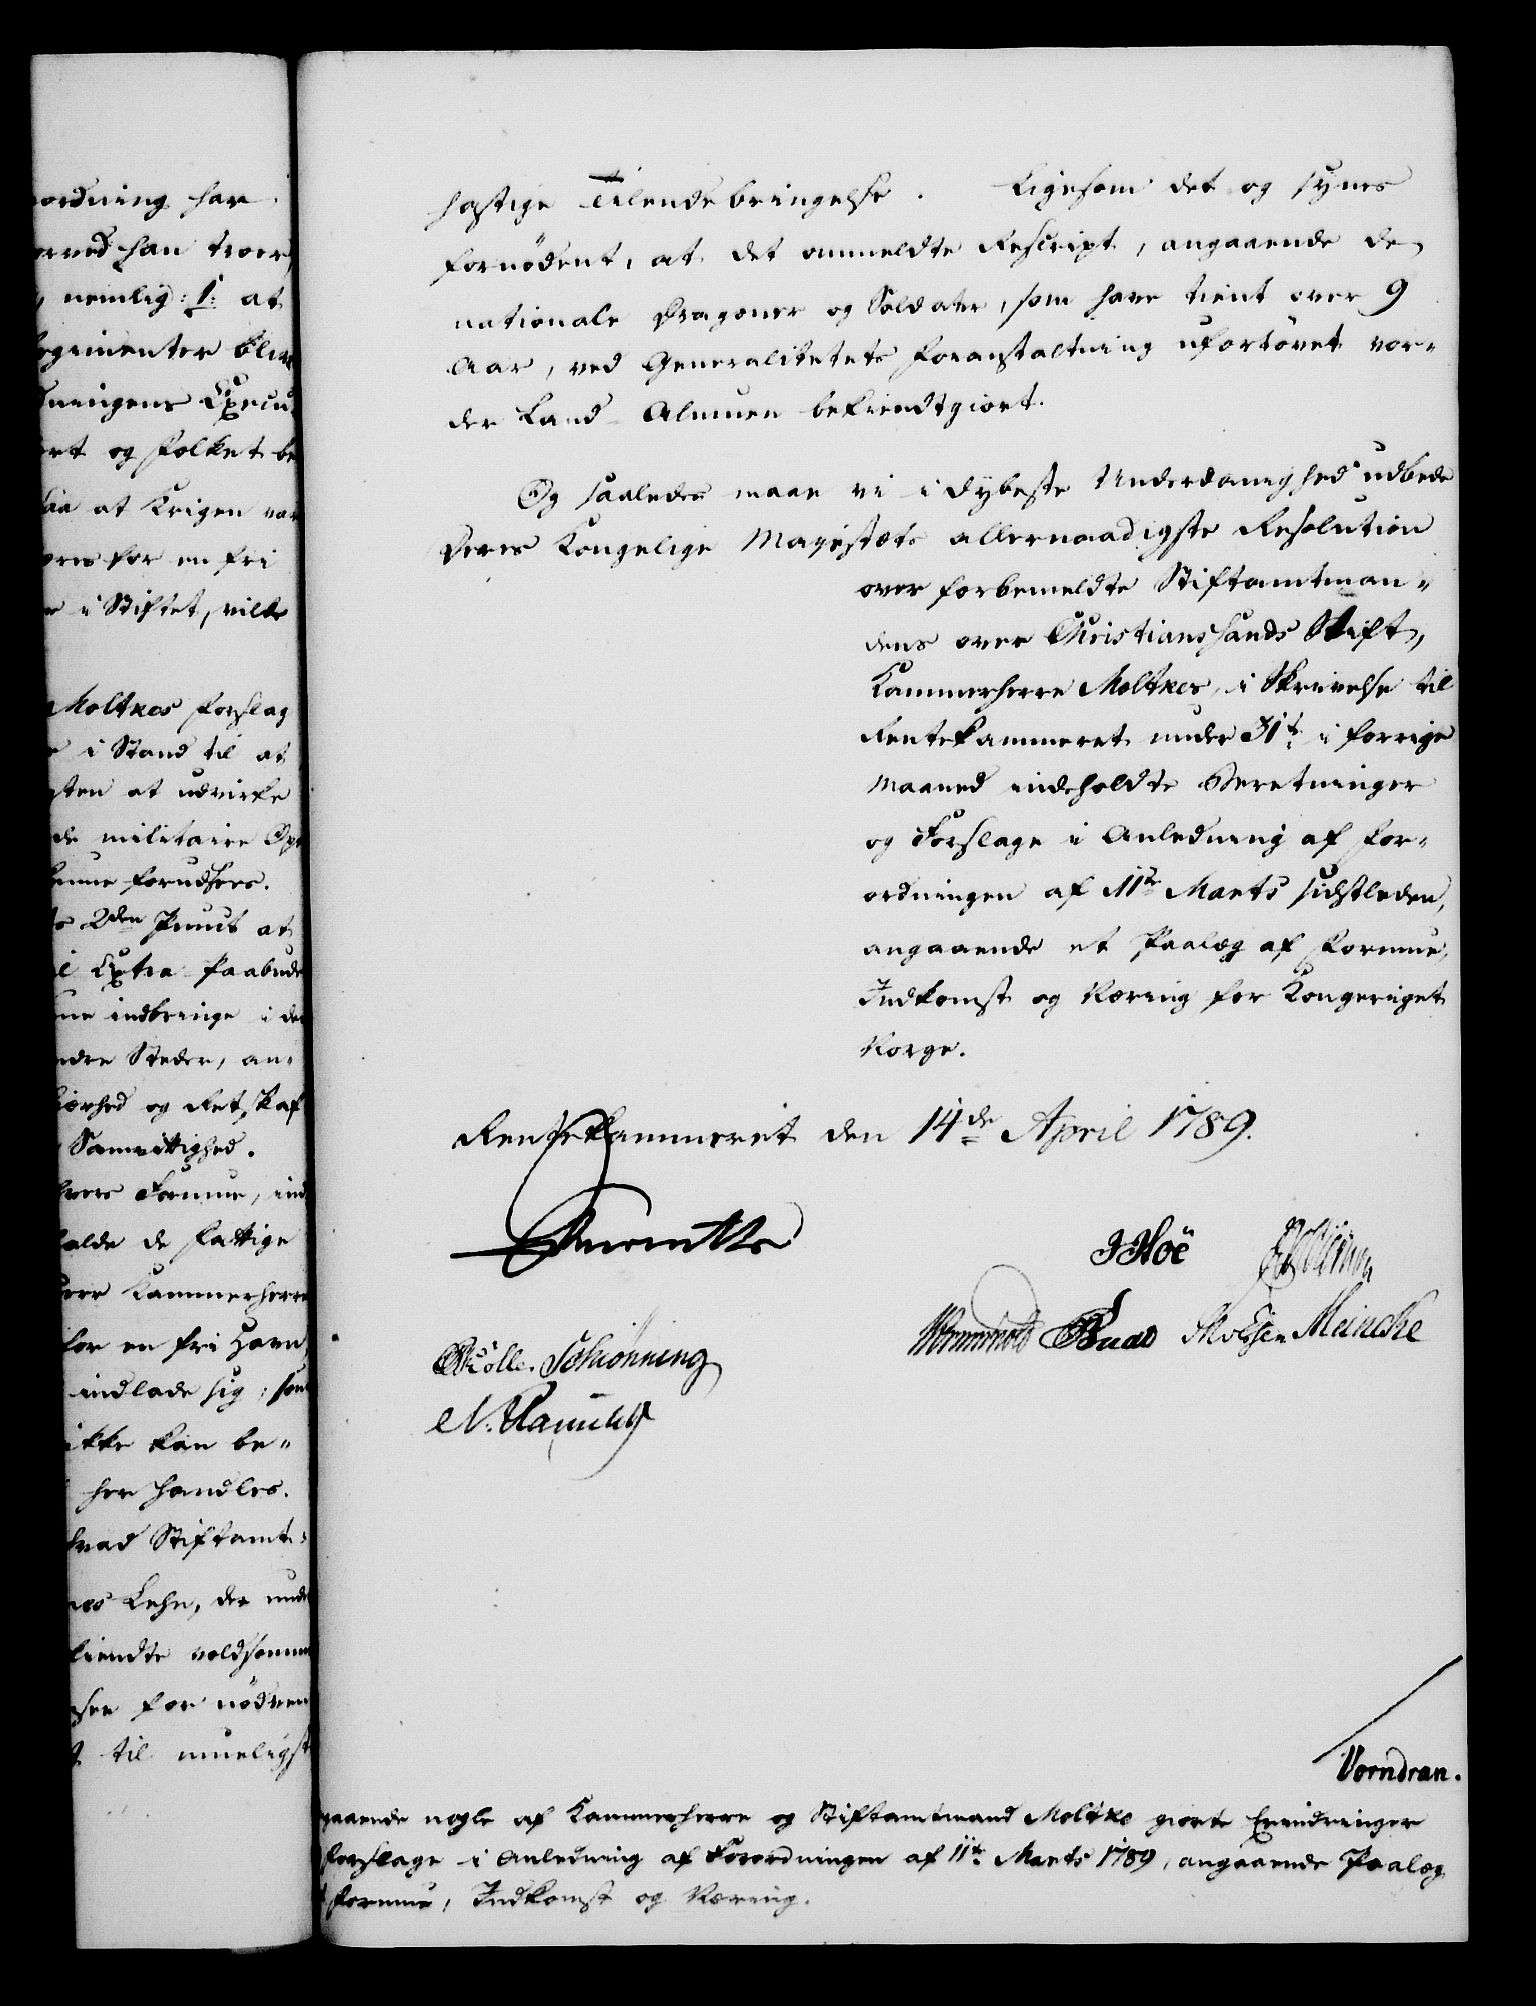 ordning har
orved han troer,
nemlig: 1: at
egimenter blive
dningens Execu-
ert og Folket be
saa at Krigen var
ores for en fri
i Stiftet, vilde
Moltkes Forslag
i Stand til at
gten at udvirke
de militaire Ope
kunne forudsees.
ts 2den Punct at
l Extra Paabude
ne indbringe i de
dre Steder, an-
barhed og Retskaf
Samvittighed.
hvers Formue, ind
halde de fattige
Kammerherre
for en fri Havn
indlade sig; som
ikke kan be-
her handles.
hvad Stiftamt-
nes Lehn, der unde
kiendte voldsomme
seer for nödven
til mueligst
hastige Tilendebringelse. Ligesom det og synes
fornødent, at det anmeldte Rescript, angaaende de
nationale Dragoner og Soldater, som have tient over 9
Aar, ved Generalitetets Foranstaltning ufortövet vor-
der Land-Almuen bekiendtgiort.
Og saaledes maae vi i dybeste Underdanighed udbede
Deres Kongelige Majestæts allernaadigste Resolution
over forbemeldte Stiftamtman-
dens over Christianssands Stift,
Kammerherre Moltkes, i Skrivelse til
Rentekammeret under 31te i forrige
Maaned indeholdte Beretninger
og Forslage i Anledning af For-
ordningen af 11te Marts sidstleden,
angaaende et Paalæg af Formue,
Indkomst og Næring for Kongeriget
Norge.
Rentekammeret den 14de April 1789.
JHoë
Müller. Schiønning
Wormskiold Buad Meincke
Vorndran.
gaaende nogle af Kammerherre og Stiftamtmand Moltke giorte Erindringer
Forslage i Anledning af Forordningen af 11te Marts 1789, angaaende Paalæg
Formue, Indkomst og Næring.